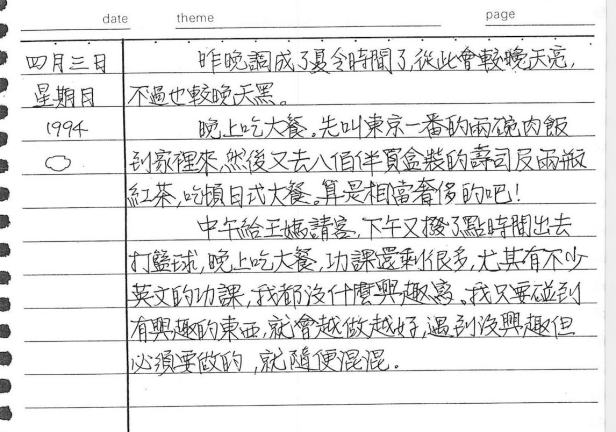 date theme page
四月三日 昨晚調成了夏令時間了,從此會較晚天亮,
星期日 不過也較晚天黑。
1994 晚上吃大餐。先叫東京一番的兩碗肉飯
到家裡來,然後又去八佰伴買盒裝的壽司及兩瓶
紅茶,吃頓日式大餐。算是相當奢侈的吧!
中午給王媽請客,下午又撥了點時間出去
打籃球,晚上吃大餐,功課還剩很多,尤其有不少
英文的功課,我都沒什麼興趣寫。我只要碰到
有興趣的東西,就會越做越好,遇到沒興趣但
必須要做的,就隨便混混。